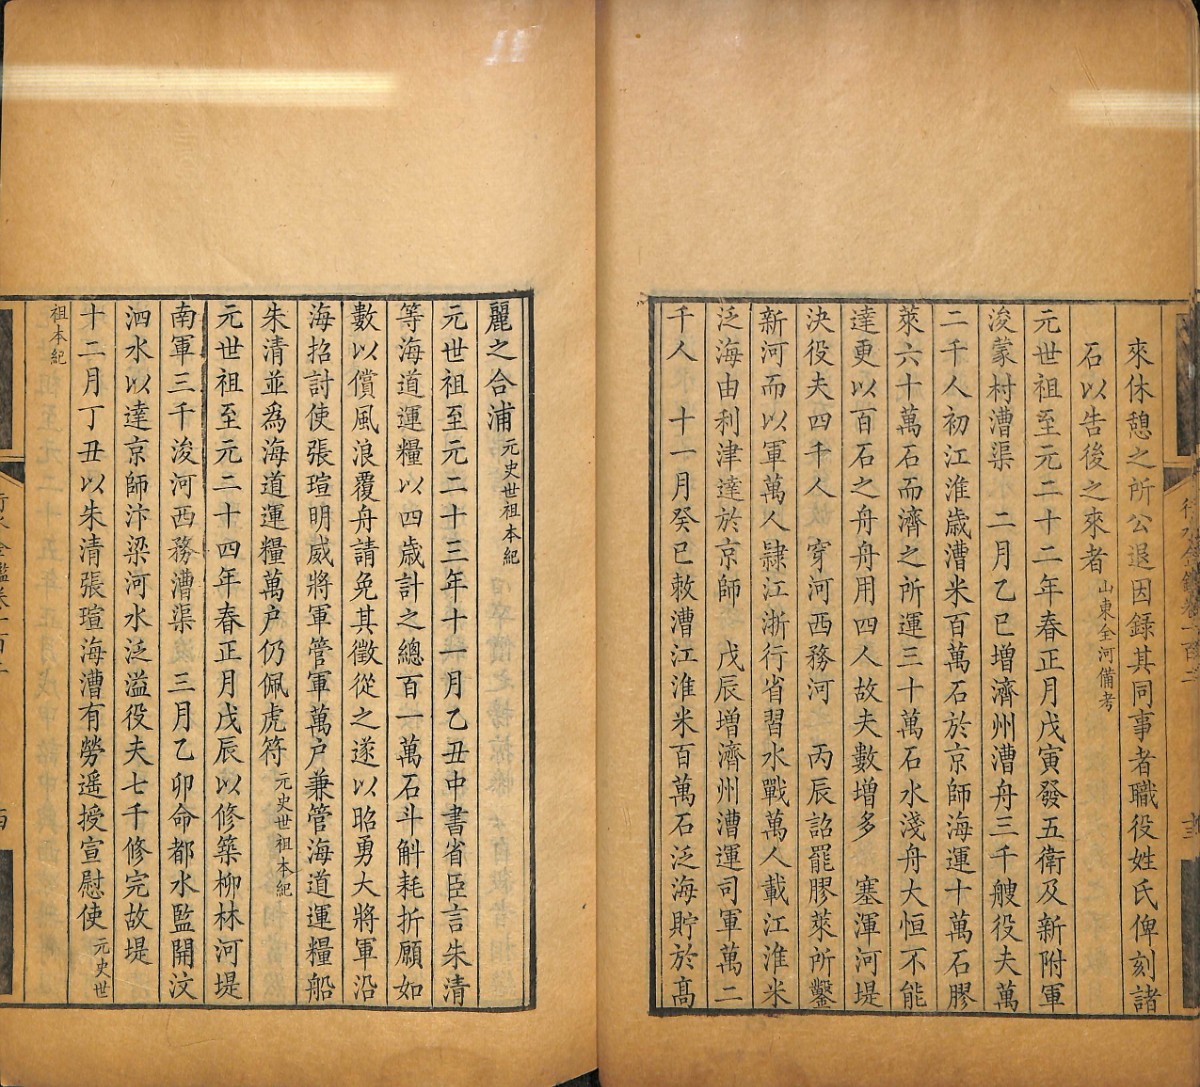 來休憩之所公退因錄其同事者職役姓氏俾刻諸
石以告後之來者 山東全河備考
元世祖至元二十二年春正月戊寅發五衛及新附軍
浚蒙村漕渠 二月乙巳增濟州漕舟三千艘役夫萬
二千人初江淮歲漕米百萬石於京師海運十萬石膠
萊六十萬石而濟之所運三十萬石水淺舟大恒不能
達更以百石之舟舟用四人故夫數增多 塞渾河堤
決役夫四千人 穿河西務河 丙辰詔罷膠萊所鑿
新河而以軍萬人隸江浙行省習水戰萬人載江淮米
泛海由利津達於京師 戊辰增濟州漕運司軍萬二
千人 十一月癸巳敕漕江淮米百萬石泛海貯於高
麗之合浦 元史世祖本紀
元世祖至元二十三年十一月乙丑中書省臣言朱清
等海道運糧以四歲計之總百一萬石斗斛耗折願如
數以償風浪覆舟請免其徵從之遂以昭勇大將軍沿
海招討使張瑄明威將軍管軍萬戶兼管海道運糧船
朱清並為海道運糧萬户仍佩虎符 元史世祖本紀
元世祖至元二十四年春正月戊辰以修築柳林河堤
南軍三千浚河西務漕渠 三月乙卯命都水監開汶
泗水以達京師汴梁河水泛溢役夫七千修完故堤
十二月丁丑以朱清張瑄海漕有勞遥授宣慰使 元史世
祖本紀